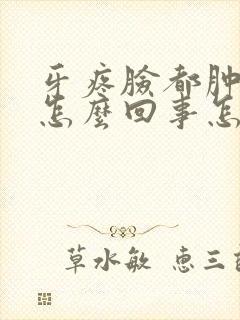 牙疼臉都肿
怎麼回事怎
草水敏 惠三